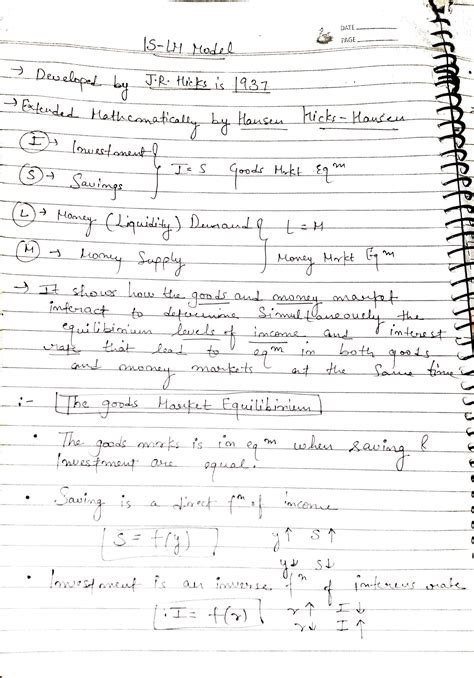 DATE
PAGE
IS-LM Model
→ Developed by J.R. Hicks is 1937
→ Extended Mathematically by Hansen Hicks-Hansen
I → Investment }
S → Savings } I = S Goods Mrkt Eqᵐ
L → Money (Liquidity) Demand } L = M
M → Money Supply } Money Mrkt Eqᵐ
→ It shows how the goods and money market
interact to determine Simultaneously the
equilibrium levels of income and interest
rate that lead to eqᵐ in both goods
and money markets at the same time
:- The goods Market Equilibrium
• The goods mrkts is in eqᵐ when saving &
Investment are equal.
• Saving is a direct fⁿ of income
S = f(y) y↑ S↑
y↓ S↓
• Investment is an inverse fⁿ of interest rate
I = f(r) r↑ I↓
r↓ I↑